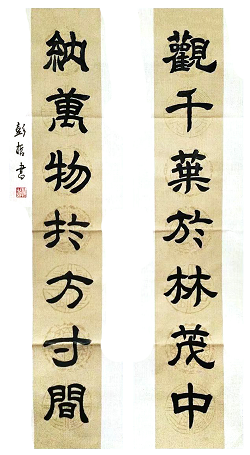 觀千葉於林茂中
納萬物於方寸間
彭哲書